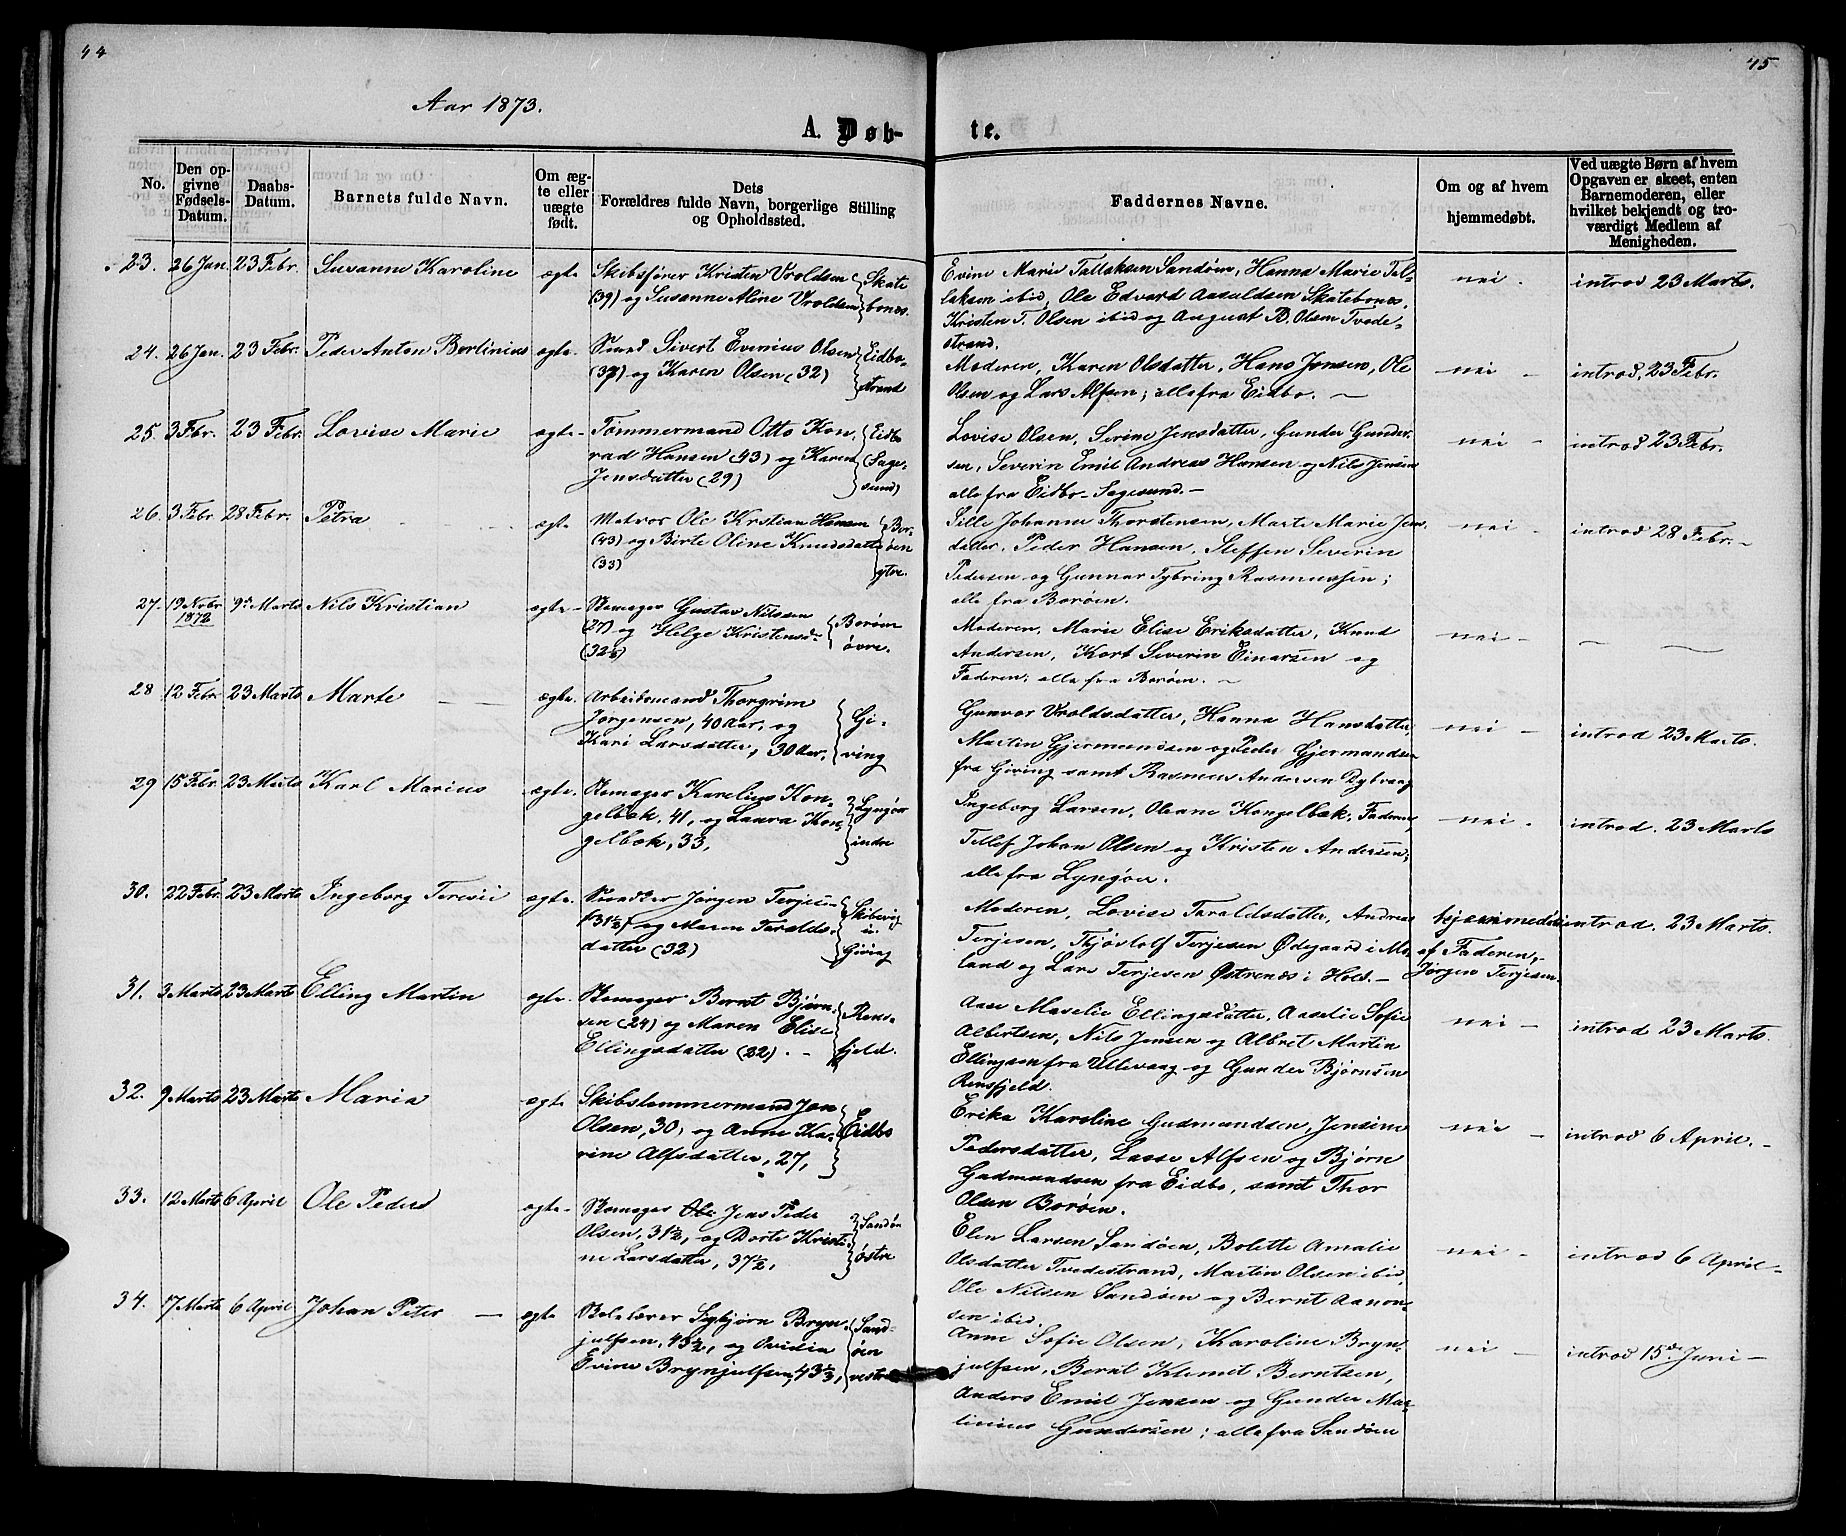 44
45
Aar 1873.
A. Døb-
te.
No.
Den op-
givne
Fødsels-
Datum.
Daabs-
Datum.
Barnets fulde Navn.
Om æg-
te eller
uægte
født.
Dets
Forældres fulde Navn, borgerlige Stilling
og Opholdssted.
Faddernes Navne.
Om og af hvem
hjemmedøbt.
Ved uægte Børn af hvem
Opgaven er skeet, enten
Barnemoderen, eller
hvilket bekjendt og tro-
værdigt Medlem af
Menigheden.
23. 26 Jan. 23 Febr. Susanne Karoline ægte
Skibsfører Kristen Vroldsen
(39) og Susanne Aline Vroldsen
Skate
bones.
Evine Marie Tallaksen Sandøen, Hanna Marie Tal-
laksen ibid, Ole Edvard Aasuldsen Skatebones,
Kristen T. Olsen ibid og August B. Olsen Tvede-
strand.
nei.
introd 23 Marts.
24. 26 Jan. 23 Febr. Peder Anton Berlinius ægte
Smed Sivert Evenius Olsen
(37) og Karen Olsen (32)
Eidbo-
strand
Moderen, Karen Olsdatter, Hans Jensen, Ole
Olsen og Lars Alfsen; alle fra Eidbo. —
nei —
introd, 23 Febr.
25. 3 Fbr. 23 Febr. Lovise Marie ægte-
Tømmermand Otto Kon-
rad Hansen (43) og Karen
Jensdatter (29)
Eidbo
(Sage-
sund)
Lovise Olsen, Serine Jensdatter, Gunder Gunder-
sen, Severin Emil Andreas Hansen og Nils Jensen
alle fra Eidbo-Sagesund. —
nei —
introd 23 Febr.
26. 3 Febr. 28 Febr. Petra ægte
Matros Ole Krstian Hansen
(43) og Birte Oline Knudsdatter
(33)
Bor-
øen
ytre.
Sille Johanne Thorstensen, Marte Marie Jens-
datter, Peder Hansen, Steffen Severin
Pedersen og Gunnar Tybring Rasmussen;
alle fra Borøen.
nei —
introd 28 Febr. —
27. 19 Novbr 1872 9de Marts Nils Kristian ægte-
Styrmand Gustav Nilssen
(27) og Helge Kristensd-
Borøen
øvre.
Moderen, Marie Elise Eriksdatter, Knud
Andersen, Kort Severin Einarsen og
Faderen; alle fra Borøen. —
nei —
—
28 12 Febr 23 Marts Marte — — ægte.
Arbeidsmand Thorgrim
Jørgensen, 40 Aar, og
Kari Larsdatter, 30 Aar,
Gi-
ving
Gunvor Vroldsdatter, Hanna Hansdatter,
Martin Gjermundsen og Peder Gjermundsen
fra Giving samt Rasmus Andersen Dybvaag
nei —
introd 23 Marts.
29 15 Febr. 23 Marts Karl Marius ægte.
Karelius Kon-
gelbæk, 41, og Laura Kon-
gelbæk, 33,
Lyngør
indre
Ingeborg Larsen, Oleane Kongelbæk, Faderen,
Tellef Johan Olsen og Kristen Andersen;
alle fra Lyngøer.
nei.
introd. 23 Marts
30. 22 Febr. 23 Marts Ingeborg ægte.
Jørgen Terjesen
(31½) og Maren Taralds-
datter (32)
Skibevig
i
Giving
Moderen, Lovise Taraldsdatter, Andreas
Terjesen, Thjøvlolf Terjesen Ødegaard i Mo-
land og Lars Terjesen Østrenes i Holt. —
hjemmedøbt
af Faderen,
Jørgen Terjesen.
introd. 23 Marts.
31. 3 Marts 23 Marts Elling Martin ægte.
Bernt Bjørn-
sen (24) og Maren Elise
Ellingsdatter (22). —
Rens-
fjeld.
Aase Maselie Ellingsdatter, Aaselie Sofie
Albertsen, Nils Jensen og Albret Martin
Ellingsen fra Ullevaag og Gunder Bjørnsen
Rensfjeld.
nei —
introd 23 Marts.
32. 9 Marts 23 Marts Maria ægte
Skibstømmermand Jon
Olsen, 30, og Anne Ka-
rine Alfsdatter, 27,
Eidbo
Erika Karoline Gudmundsen, Jensine
Pedersdatter, Lasse Alfsen og Bjørn
Gudmundsen fra Eidbo, samt Thor
Olsen Borøen.
nei —
introd 6 April. —
33. 12 Marts 6 April Ole Peder ægte-
Jens Peder
Olsen, 31½, og Dorte Kristi-
ne Larsdatter, 37½,
Sandøen
østre
Elen Larsen Sandøen, Bolette Amalie
Olsdatter Tvedestrand, Martin Olsen ibid,
Ole Nilsen Sandøen og Bernt Aanon-
sen ibid.
nei —
introd 6 April —
34. 17 Marts 6 April Johan Peter — ægte
Sigbjørn Bryn-
julfsen, 43½, og Ovidia
Evine Brynjulfsen, 43½,
Sand-
øen
vestre
Anne Sofie Olsen, Karoline Bryn-
julfsen, Bernt Klemet Berntsen,
Anders Emil Jensen og Gunder Mar-
linius Gundersen; alle fra Sandøen
nei —
introd 15de Juni —